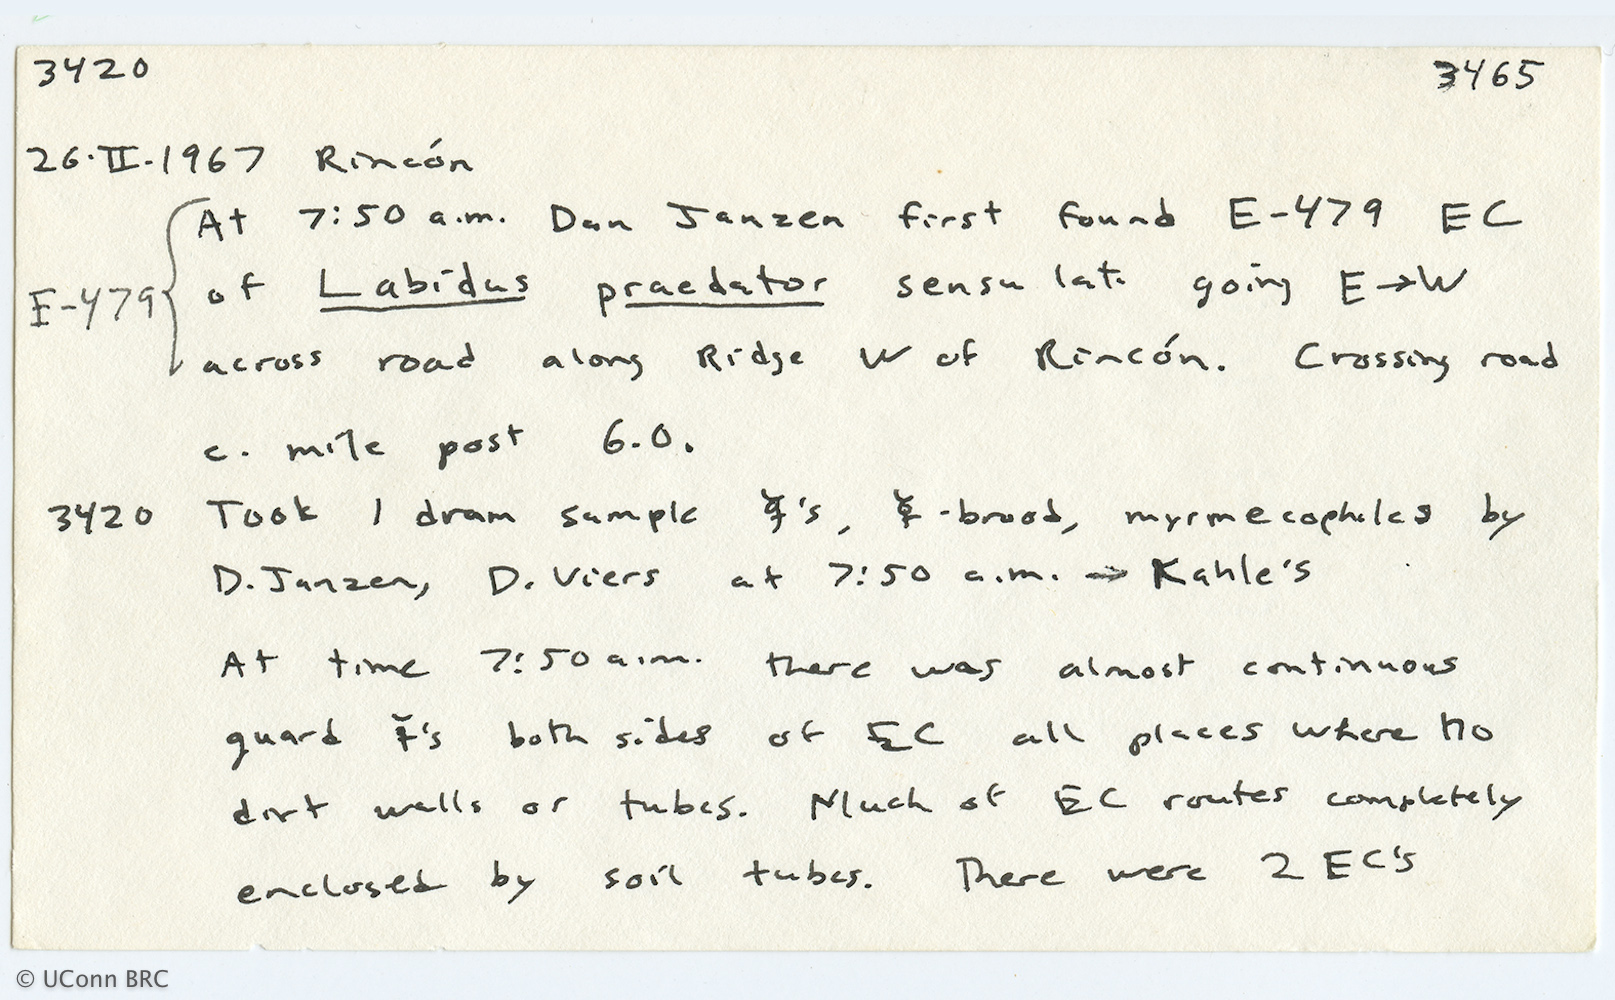 3420 3465
26·II·1967 Rincón
At 7:50 a.m. Dan Janzen first found E-479 EC
E-479 of Labidus praedator sensu lato going E→W
across road along Ridge W of Rincón. Crossing road
c. mile post 6.0.
3420 Took 1 dram sample ☿'s, ☿-brood, myrmecophiles by
D. Janzen, D. Viers at 7:50 a.m. → Kahle's
At time 7:50 a.m. there was almost continuous
guard ☿'s both sides of EC all places where no
dirt walls or tubes. Much of EC routes completely
enclosed by soil tubes. There were 2 EC's
© UConn BRC